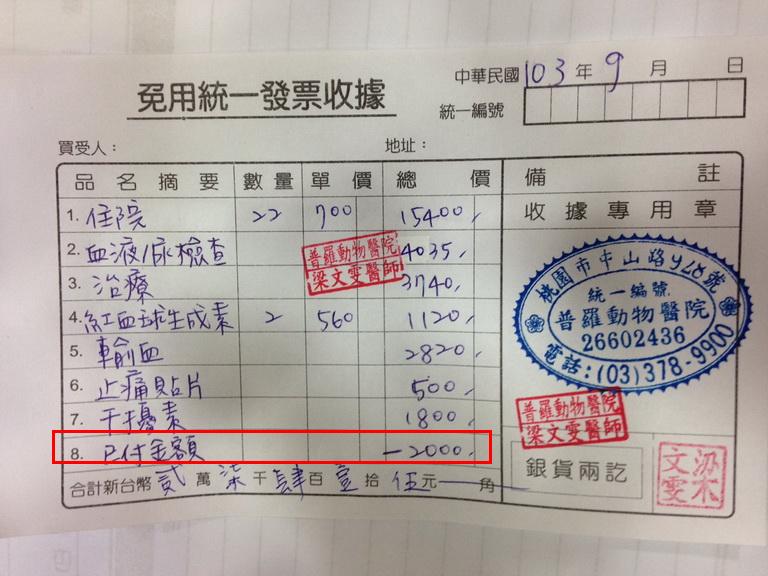 免用統一發票收據
中華民國103年9月 日
統一編號
買受人： 地址：
品名摘要 數量 單價 總價 備註
1. 住院 22 700 15400,
2. 血液/尿檢查 4035,
3. 治療 3740,
4. 紅血球生成素 2 560 1120,
5. 輸血 2820,
6. 止痛貼片 500,
7. 干擾素 1800,
8. 已付金額 -2000,
合計新台幣貳萬柒千肆百壹拾伍元 角
普羅動物醫院
梁文雯醫師
收據專用章
桃園市中山路928號
統一編號
普羅動物醫院
26602436
電話:(03)378-9900
普羅動物醫院
梁文雯醫師
銀貨兩訖
梁文雯